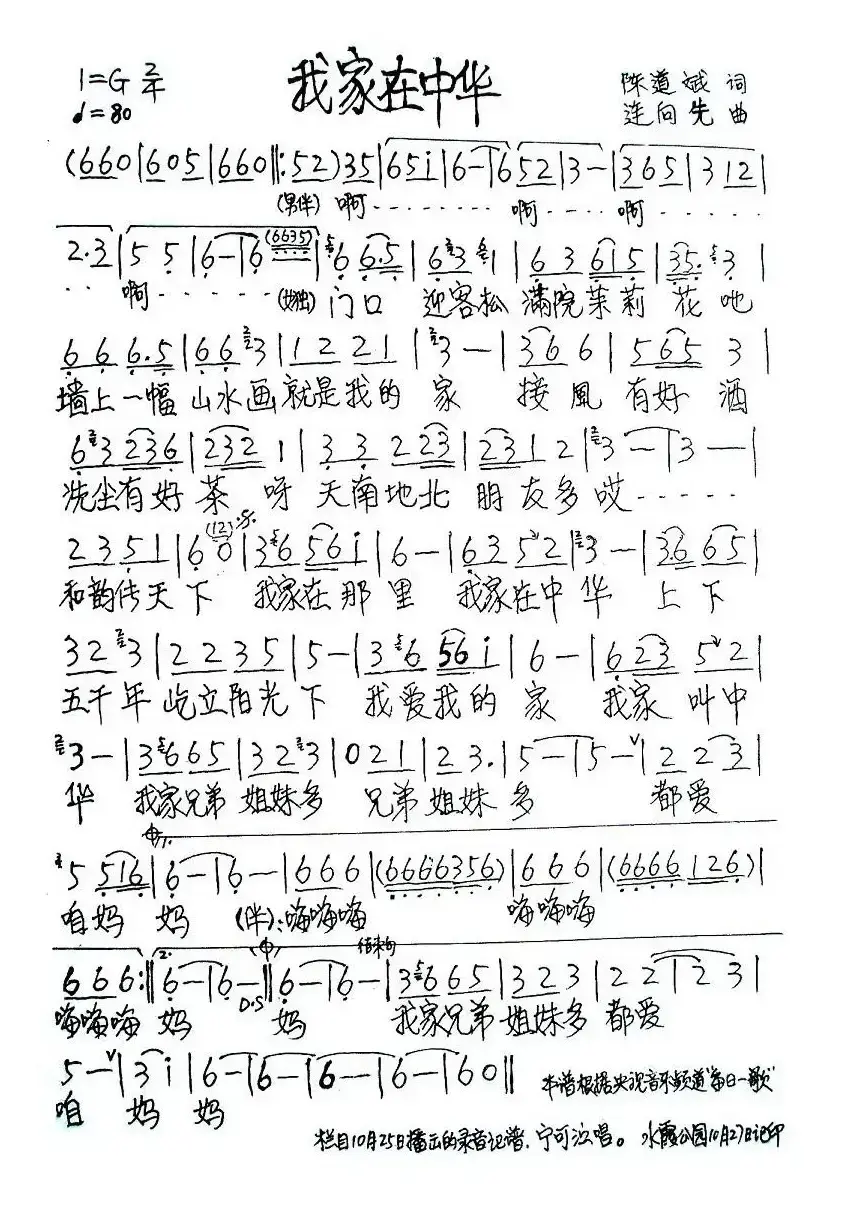 我家在中华
1=G 2/4
♩=80
陈道斌 词
连向先 曲
(660|605|660‖:52)35|65i|6-|652|3-|365|312|
(男伴) 啊········ 啊···· 啊·····
2·3|55|6-|6(6635)|6 6·5|63 1|63 615|35· 3|
·· 啊····· (女独) 门口 迎客松 满院茉莉 花吔
66 6·5|66 3|12 21|3-|36 6|565 3|
墙上一幅 山水画 就是我的 家 接風 有好 酒
63 236|232 1|33 223|231 2|3-|3-|
冼尘有好 茶 呀 天南地北 朋友多哎·····
23 51|6(12)0|36 56i|6-|63 52|3-|36 65|
和韵传天 下 我家在那 里 我家在中 华 上下
32 3|22 35|5-|36 56i|6-|623 52|
五千年 屹立阳光 下 我爱我的 家 我家 叫中
3-|36 65|32 3|021|23·|5-|5-|22 3|
华 我家兄弟 姐妹多 兄弟 姐妹 多 都爱
5 516|6-|6-|66 6|(6666 356)|66 6|(6666 126)|
咱妈 妈 (伴):嗨嗨嗨 嗨嗨嗨
66 6:‖2.6-|6-‖6-|6-|36 65|32 3|22|23|
D.S 结束句
嗨嗨嗨 妈 妈 我家兄弟 姐妹多 都爱
5-|3i|6-|6-|6-|6-|60‖
咱 妈 妈
本谱根据央视音乐频道"每日一歌"
栏目10月25日播出的录音记谱.宁可泣唱。水霞公园10月27日记印